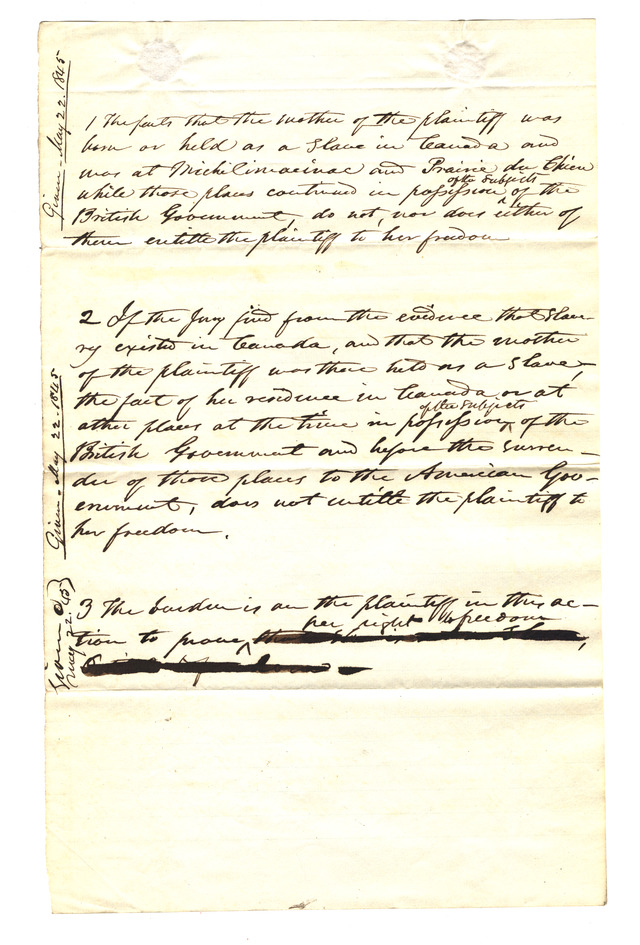 Given - May 22. 1845
1 The facts that the mother of the plaintiff was
born or held as a Slave in Canada and
was at Michilimacinac and Prairie du Chien
of the Subjects
while those places continued in possession ^ of the
British Government, do not, nor does either of
them entitle the plaintiff to her freedom
Given - May 22. 1845
2 If the Jury find from the evidence that Slave-
ry existed in Canada, and that the mother
of the plaintiff was there held as a Slave,
the fact of her residence in Canada or at
of the Subjects
other places at the time in possession ^ of the
British Government and before the surren-
der of those places to the American Gov-
ernment, does not entitle the plaintiff to
her freedom.
Given
May 22. 45
3 The burden is on the plaintiff in this ac-
her right to freedom
tion to prove ^